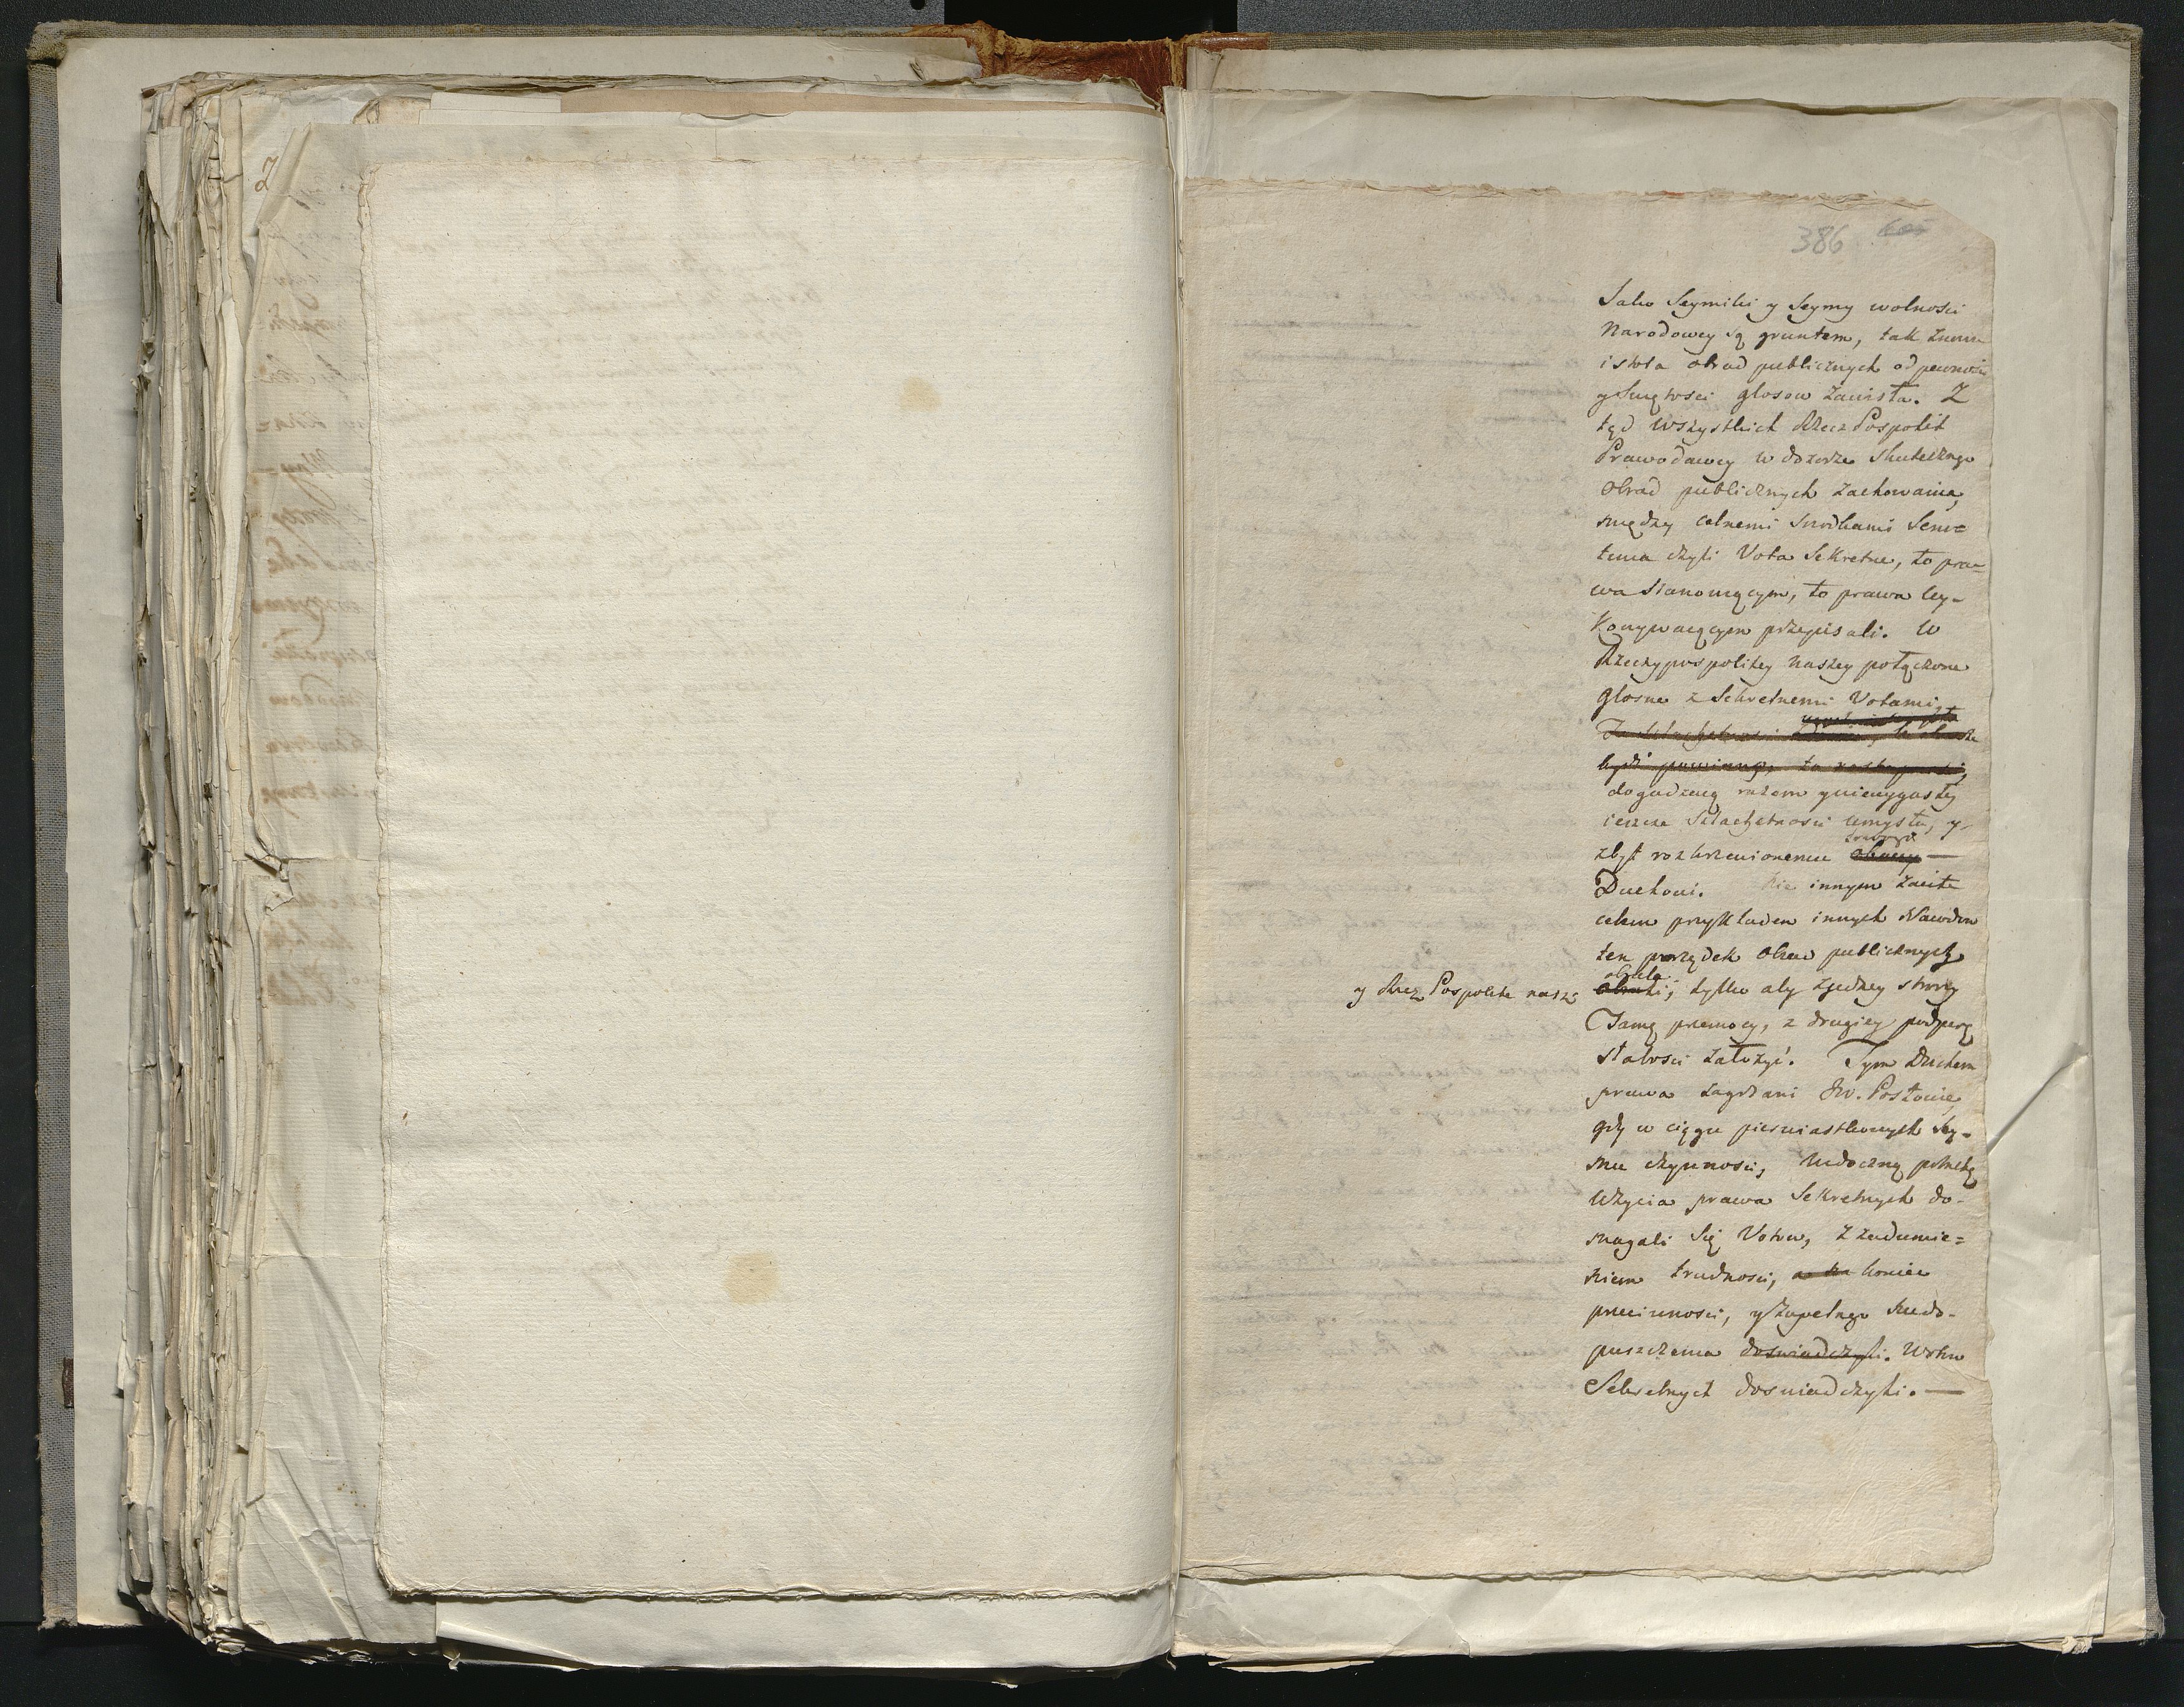 386
Jako Seymiki y Seymy wolności
Narodowey są gruntem, tak znowu
istota obrad publicznych od pewności
y Swiętości głosow zawisła. Z
tąd wszystkich Rzecz Pospolit
Prawodawcy w dozorze skutecznego
obrad publicznych zachowania,
między celnemi srodkami Seru=
tinia czyli Vota Sekretne, to pra=
wa stanowiącym, to prawa wy=
konywaiącym przepisali. W
Rzeczypospolitey naszey połączone
głosne z Sekretnemi Votami,
bydź powinny, ta
dogadzaią razem ynie wygasłey
ieszcze Szlachetności umysłu, y
zbyt rozkrzewionemu
Duchowi. Nie innym zaiste
celem przykładem innych Narodow
ten porządek obrad publicznych
y Rzecz Pospolita nasza obrała; tylko aby z jedney strony
Tamę przemocy, z drugiey podporę
stałości założyć. Tym Duchem
prawa zagrzani JW. Posłowie,
gdy w ciągu pierwiastkowych Sey=
mu czynności, widoczną potrzebę
użycia prawa Sekretnych do=
magali się Votow, z zadumie=
niem trudności, a na koniec
przeciwności, y zupełnego niedo=
puszczenia doswiadczyli. Votow
Sekretnych doswiadczyli. —